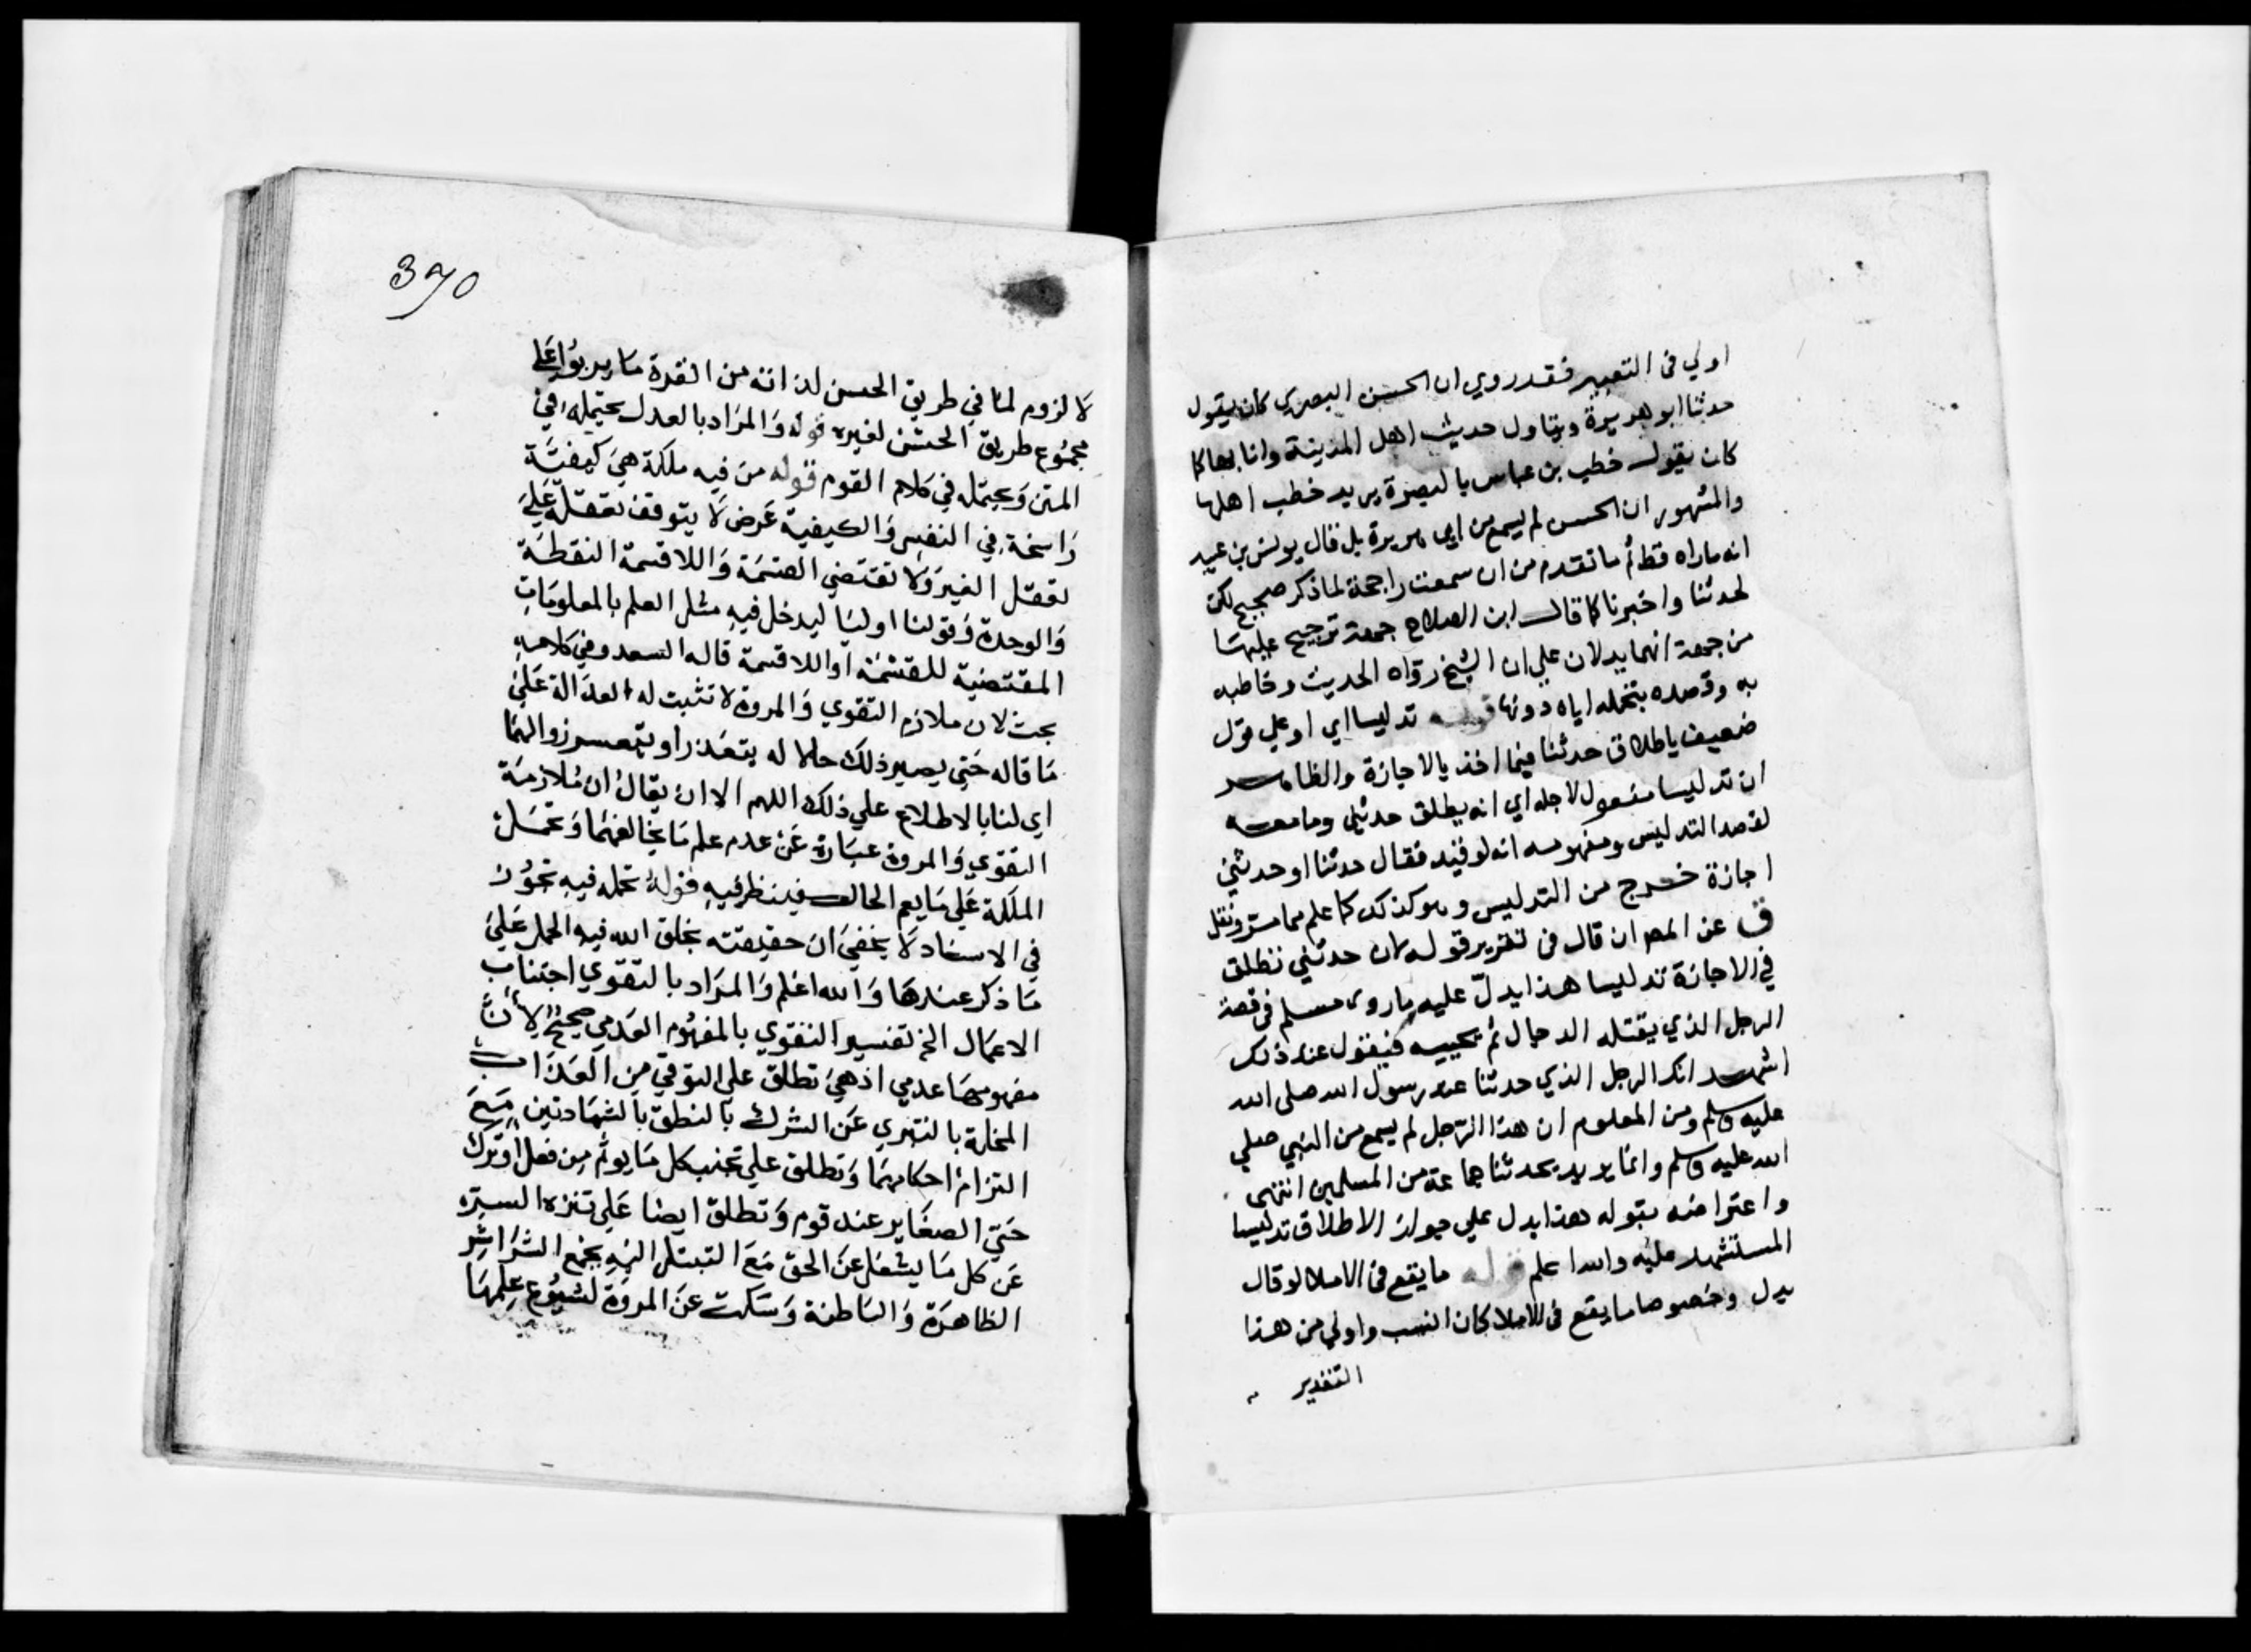 اولي في التعبير فقد روي ان الحسن البصري كان يقول
حدثنا ابو هريرة ويتاول حديث اهل المدينة وانا بها كما
كان يقول خطب بن عباس بالبصرة يريد خطب اهلها
والمشهور ان الحسن لم يسمع من ابي هريرة بل قال يونس بن عبيد
انه ماراه قط ثم ما تقدم من ان سمعت راجحة لما ذكر صحيح لكن
لحدثنا واخبرنا كما قال ابن الصلاح جهة ترجيح عليها
من جهة انهما يدلان علي ان الشيخ رواه الحديث وخاطبه
به وقصده بتحمله اياه دونها قوله تدليسا اي او علي قول
ضعيف باطلاق حدثنا فيما اخذ بالاجازة والظاهر
ان تدليسا مفعول لاجله اي انه يطلق حدثني وما معه
لقصد التدليس ومفهومه انه لو قيد فقال حدثنا او حدثني
اجازة خرج من التدليس وهو كذلك كما علم مما مر ونقل
ق عن المص ان قال في تقرير قوله كان حدثني تطلق
في الاجازة تدليسا هذا يدل عليه ما روى مسلم في قصة
الرجل الذي يقتله الدجال ثم يحييه فيقول عند ذلك
اشهد انك الرجل الذي حدثنا عنه رسول الله صلى الله
عليه وسلم ومن المعلوم ان هذا الرجل لم يسمع من النبي صلي
الله عليه وسلم وانما يريد بحدثنا جماعة من المسلمين انتهى
واعتراضه بقوله هذا يدل علي جواز الاطلاق تدليسا
المستشهد عليه والله اعلم قوله ما يقع في الاملا لو قال
بدل وخصوصا ما يقع في الاملا كان انسب واولي من هذا
التقدير
390
لا لزوم لما في طريق الحسن لذاته من القدرة ما يربوا علي
مجموع طريق الحسن لغيره قوله والمراد بالعدل يحتمله في
المتن ويحتمله في كلام القوم قوله من فيه ملكة هي كيفية
راسخة في النفس والكيفية عرض لا يتوقف تعقله علي
تعقل الغير ولا تقتضي القسمة واللا قسمة النقطة
والوحدة وقولنا اوليا ليدخل فيه مثل العلم بالمعلومات
المقتضية للقسمة او اللا قسمة قاله السعد وفي كلامه
بحث لان ملازم التقوي والمروة لا تثبت له العدالة علي
ما قاله حتي يصير ذلك حالا له يتعذر او يتعسر زوالها
اي لنا بالاطلاع علي ذلك اللهم الا ان يقال ان ملازمة
التقوي والمروة عبارة عن عدم علم ما يخالفهما وتحمل
الملكة علي ما يعم الحال فينظر فيه قوله تحمله فيه تجوز
في الاسناد لا يخفي ان حقيقته بخلق الله فيه الحمل علي
ما ذكر عندها والله اعلم والمراد بالتقوي اجتناب
الاعمال الخ تفسير التقوي بالمفهوم العدمي صحيح لان
مفهومها عدمي اذ هي تطلق علي التوقي من العذاب
المخلد بالتبري عن الشرك بالنطق بالشهادتين مع
التزام احكامهما وتطلق علي تجنب كل ما يوثم من فعل او ترك
حتي الصغاير عند قوم وتطلق ايضا علي تنزه السر
عن كل ما يشغل عن الحق مع التبتل اليه بجمع الشراشر
الظاهرة والباطنة وسكت عن المروة لشيوع علمها